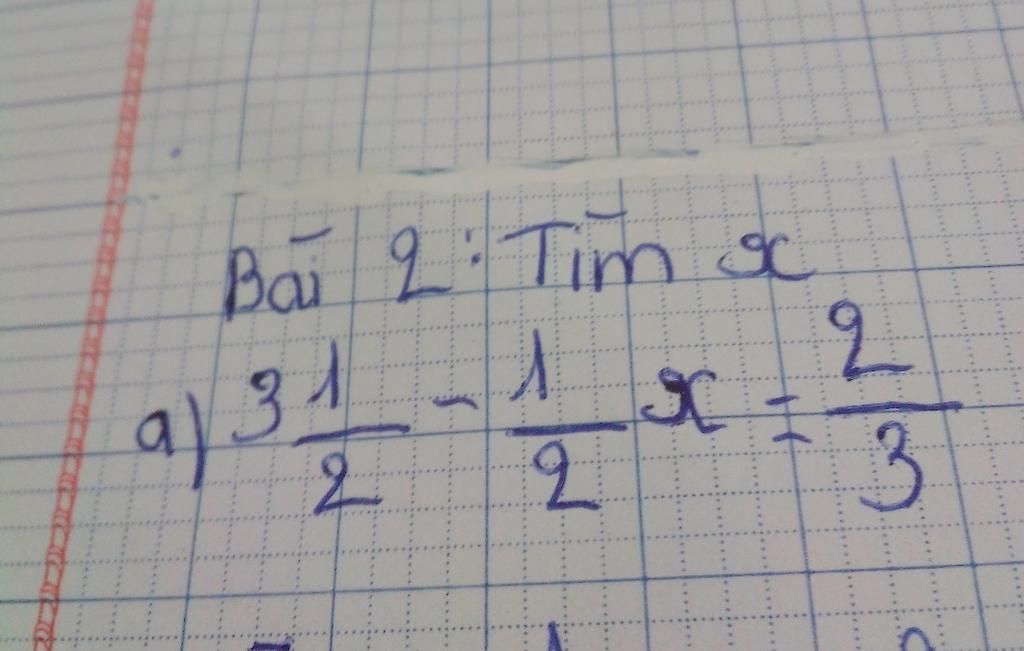 Bài 2: Tìm x
a) 3 1/2 - 1/2 x = 2/3